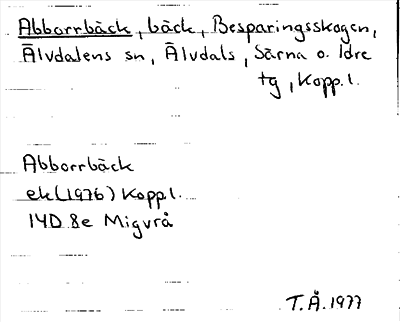 Abborrbäck, bäck, Besparingsskogen,
Älvdalens sn, Älvdals, Särna o. Idre
tg, Kopp. l.
Abborrbäck
ek (1976) Kopp l.
14D 8e Migvrå
T.Å. 1977